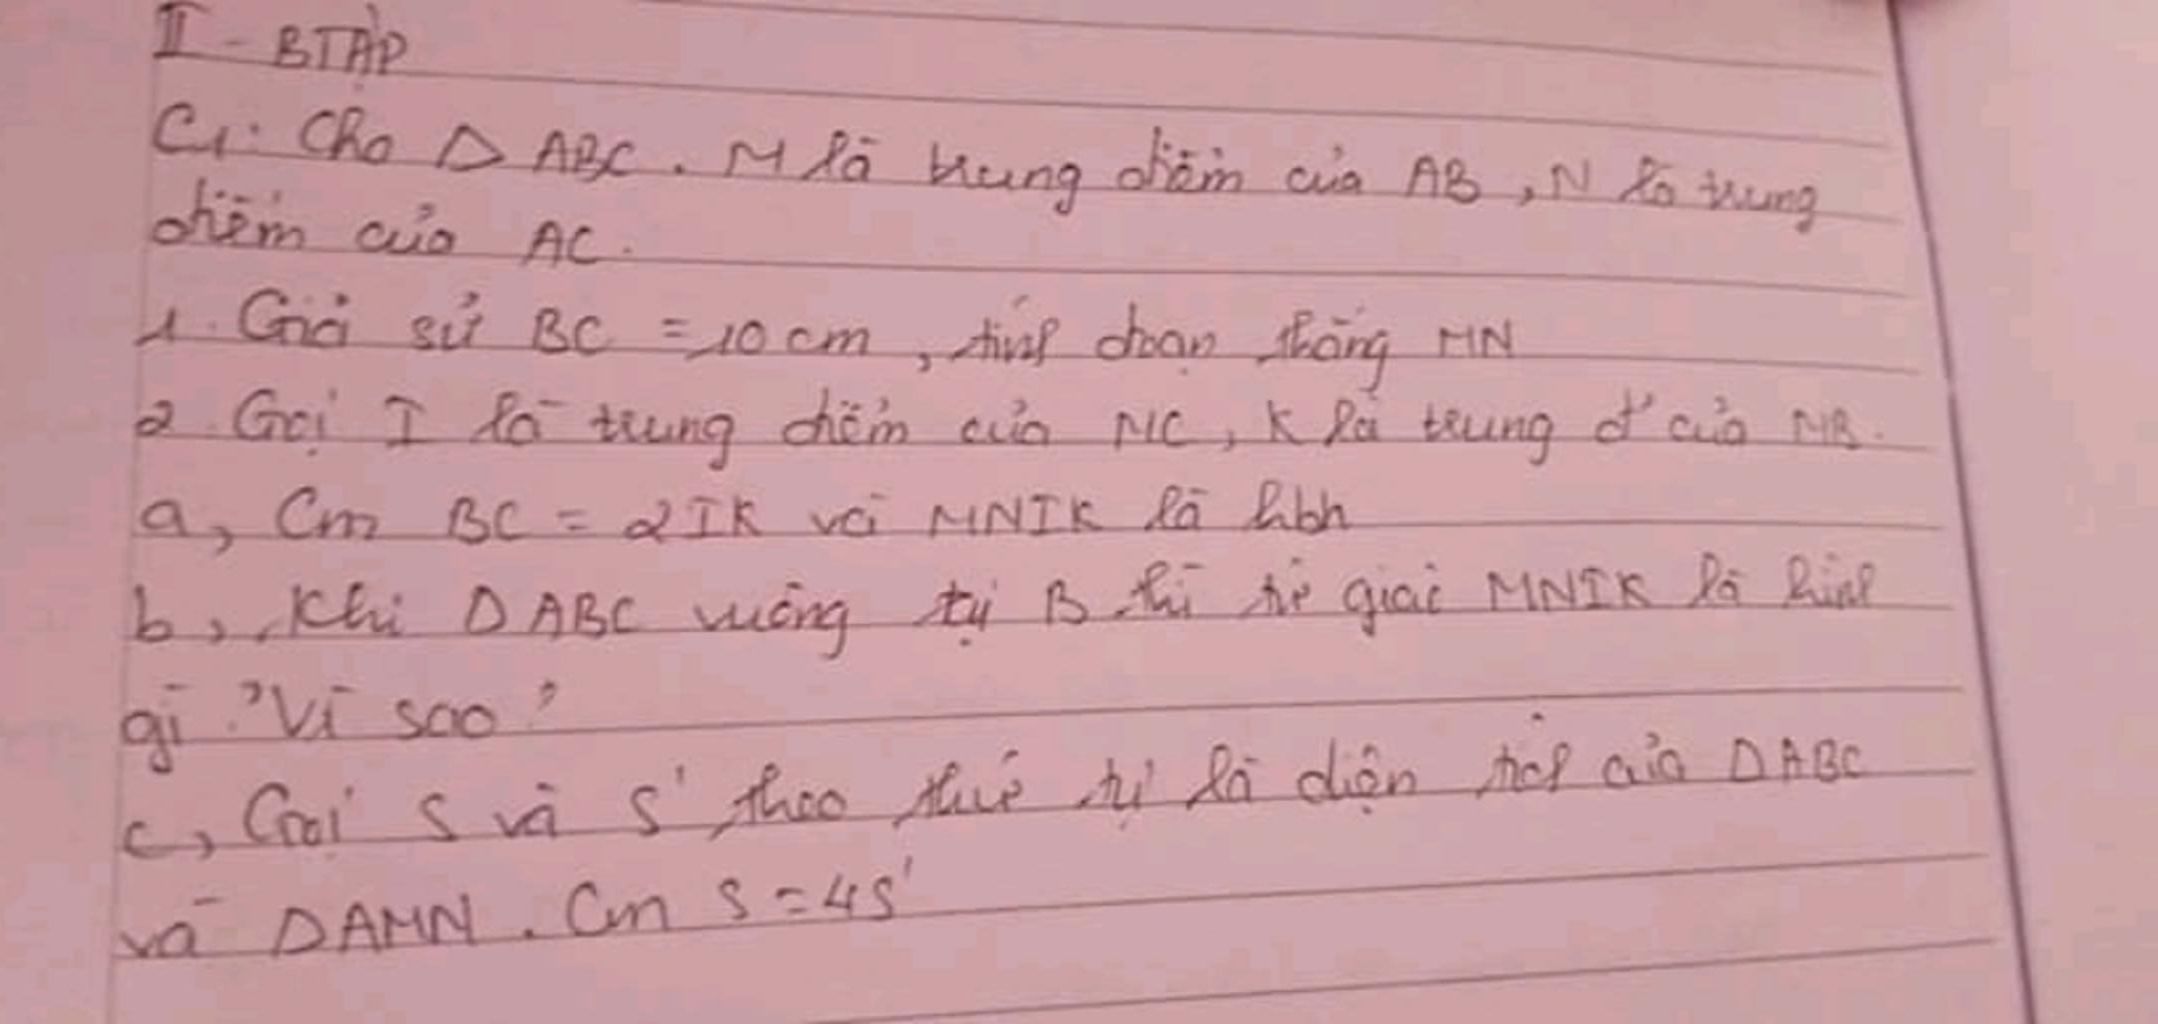 II - BTẬP
C1: Cho Δ ABC. M là trung điểm của AB, N là trung
điểm của AC.
1. Giả sử BC = 10 cm, tính đoạn thẳng MN
2. Gọi I là trung điểm của NC, K là trung đ' của MB.
a, Cm BC = 2IK và MNIK là hbh
b, Khi Δ ABC vuông tại B thì tứ giác MNIK là hình
gì? Vì sao?
c, Gọi S và S' theo thứ tự là diện tích của Δ ABC
và Δ AMN. Cm S = 4S'